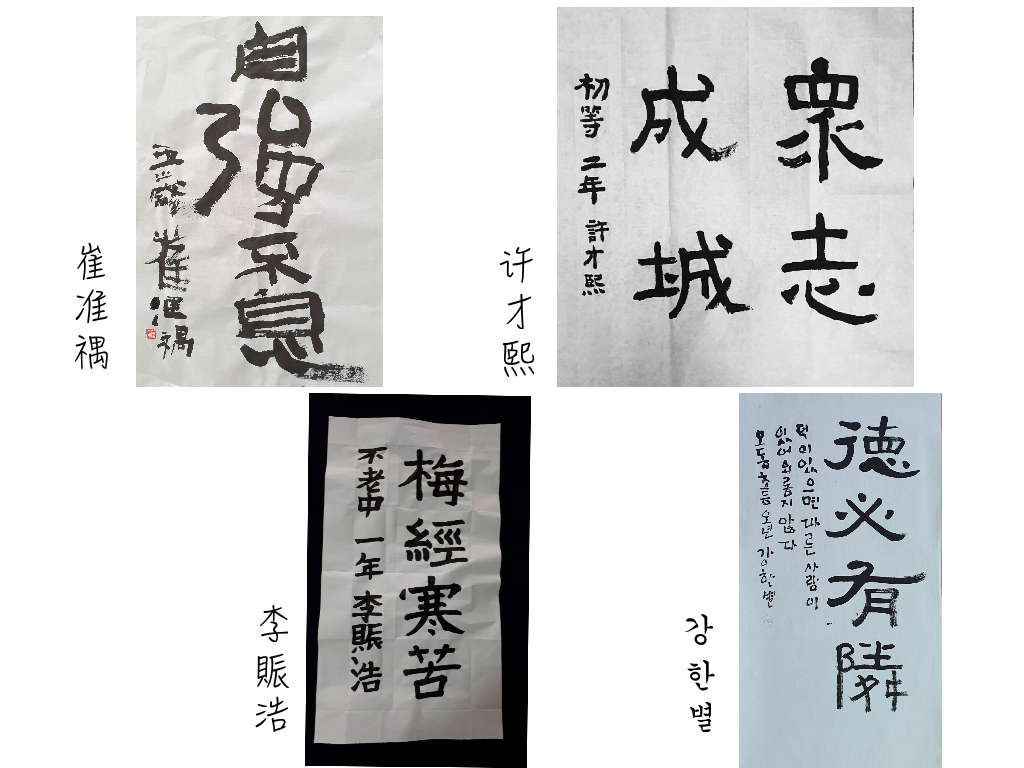 崔准禑
自强不息
五歲 崔准禑
许才熙
衆志
成城
初等 二年 許才熙
李賑浩
梅經寒苦
不老中 一年 李賑浩
강한별
德必有隣
덕이있으면 다른사람이
있어 외롭지 않다
오동초등 오년 강한별